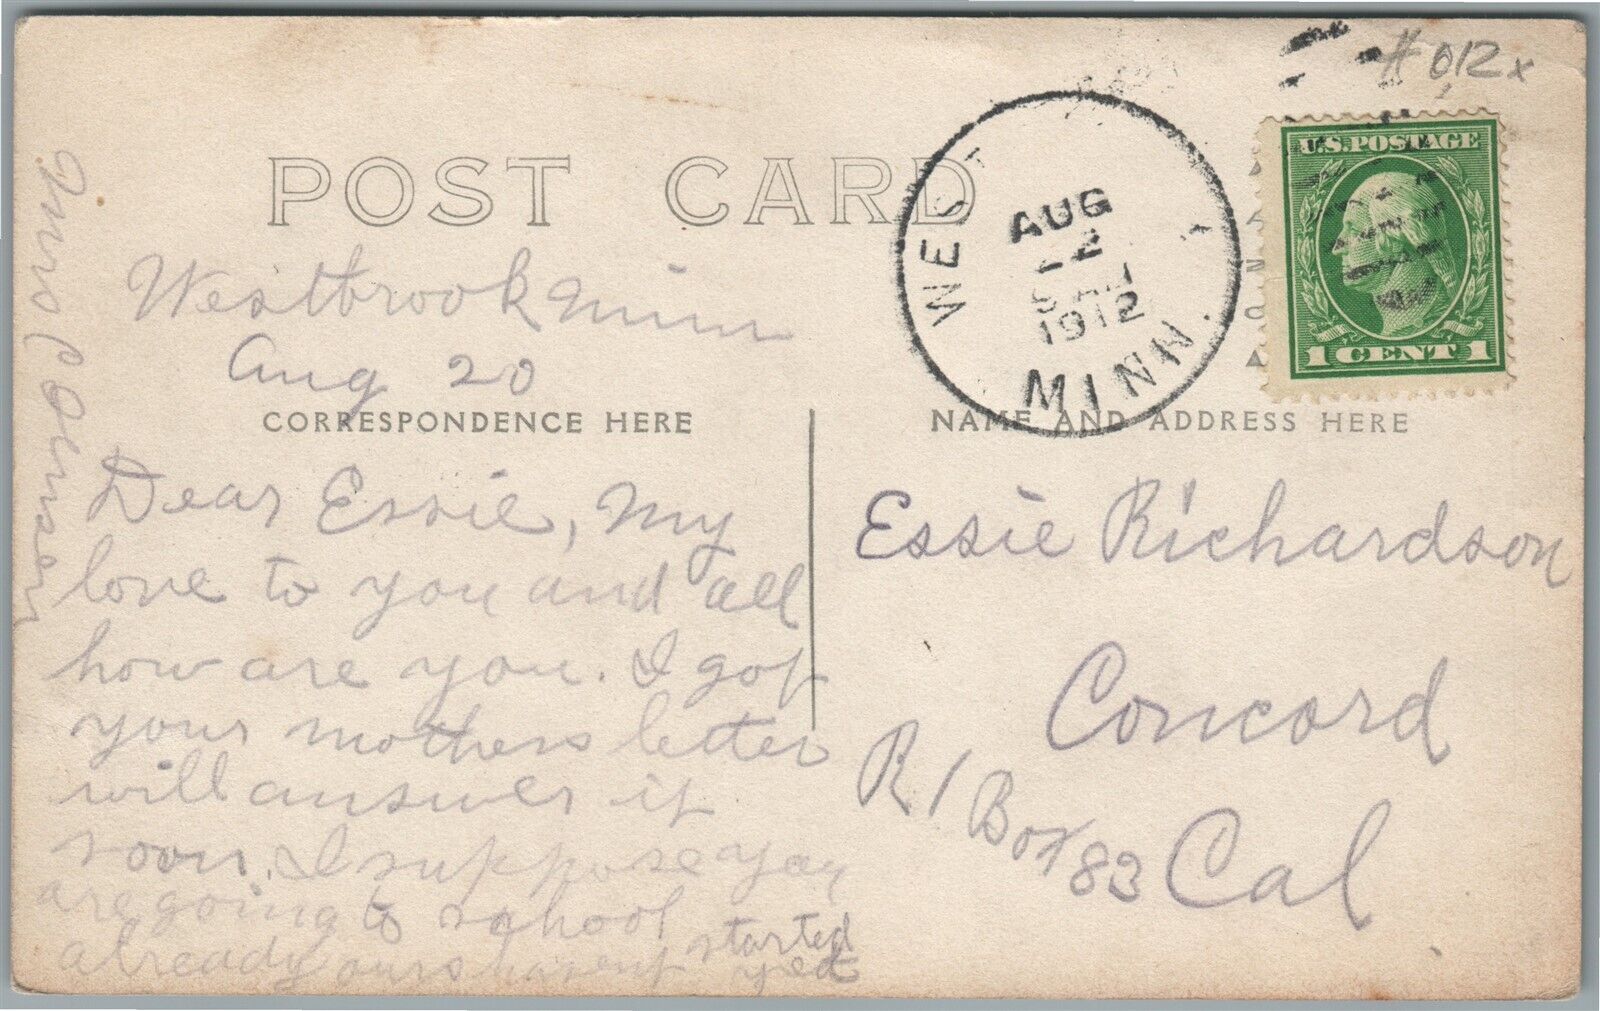 #012x
POST CARD
WEST
AUG
22
AM
1912
MINN.
U.S.POSTAGE
1 CENT 1
Westbrook Minn
Aug 20
CORRESPONDENCE HERE
NAME AND ADDRESS HERE
Dear Essie, My
love to you and all
how are you. I got
your mothers letter
will answer it
soon. I suppose you
are going to school
already ours havent started
yet
Essie Richardson
Concord
R 1 Box 83
Cal
Mrs C